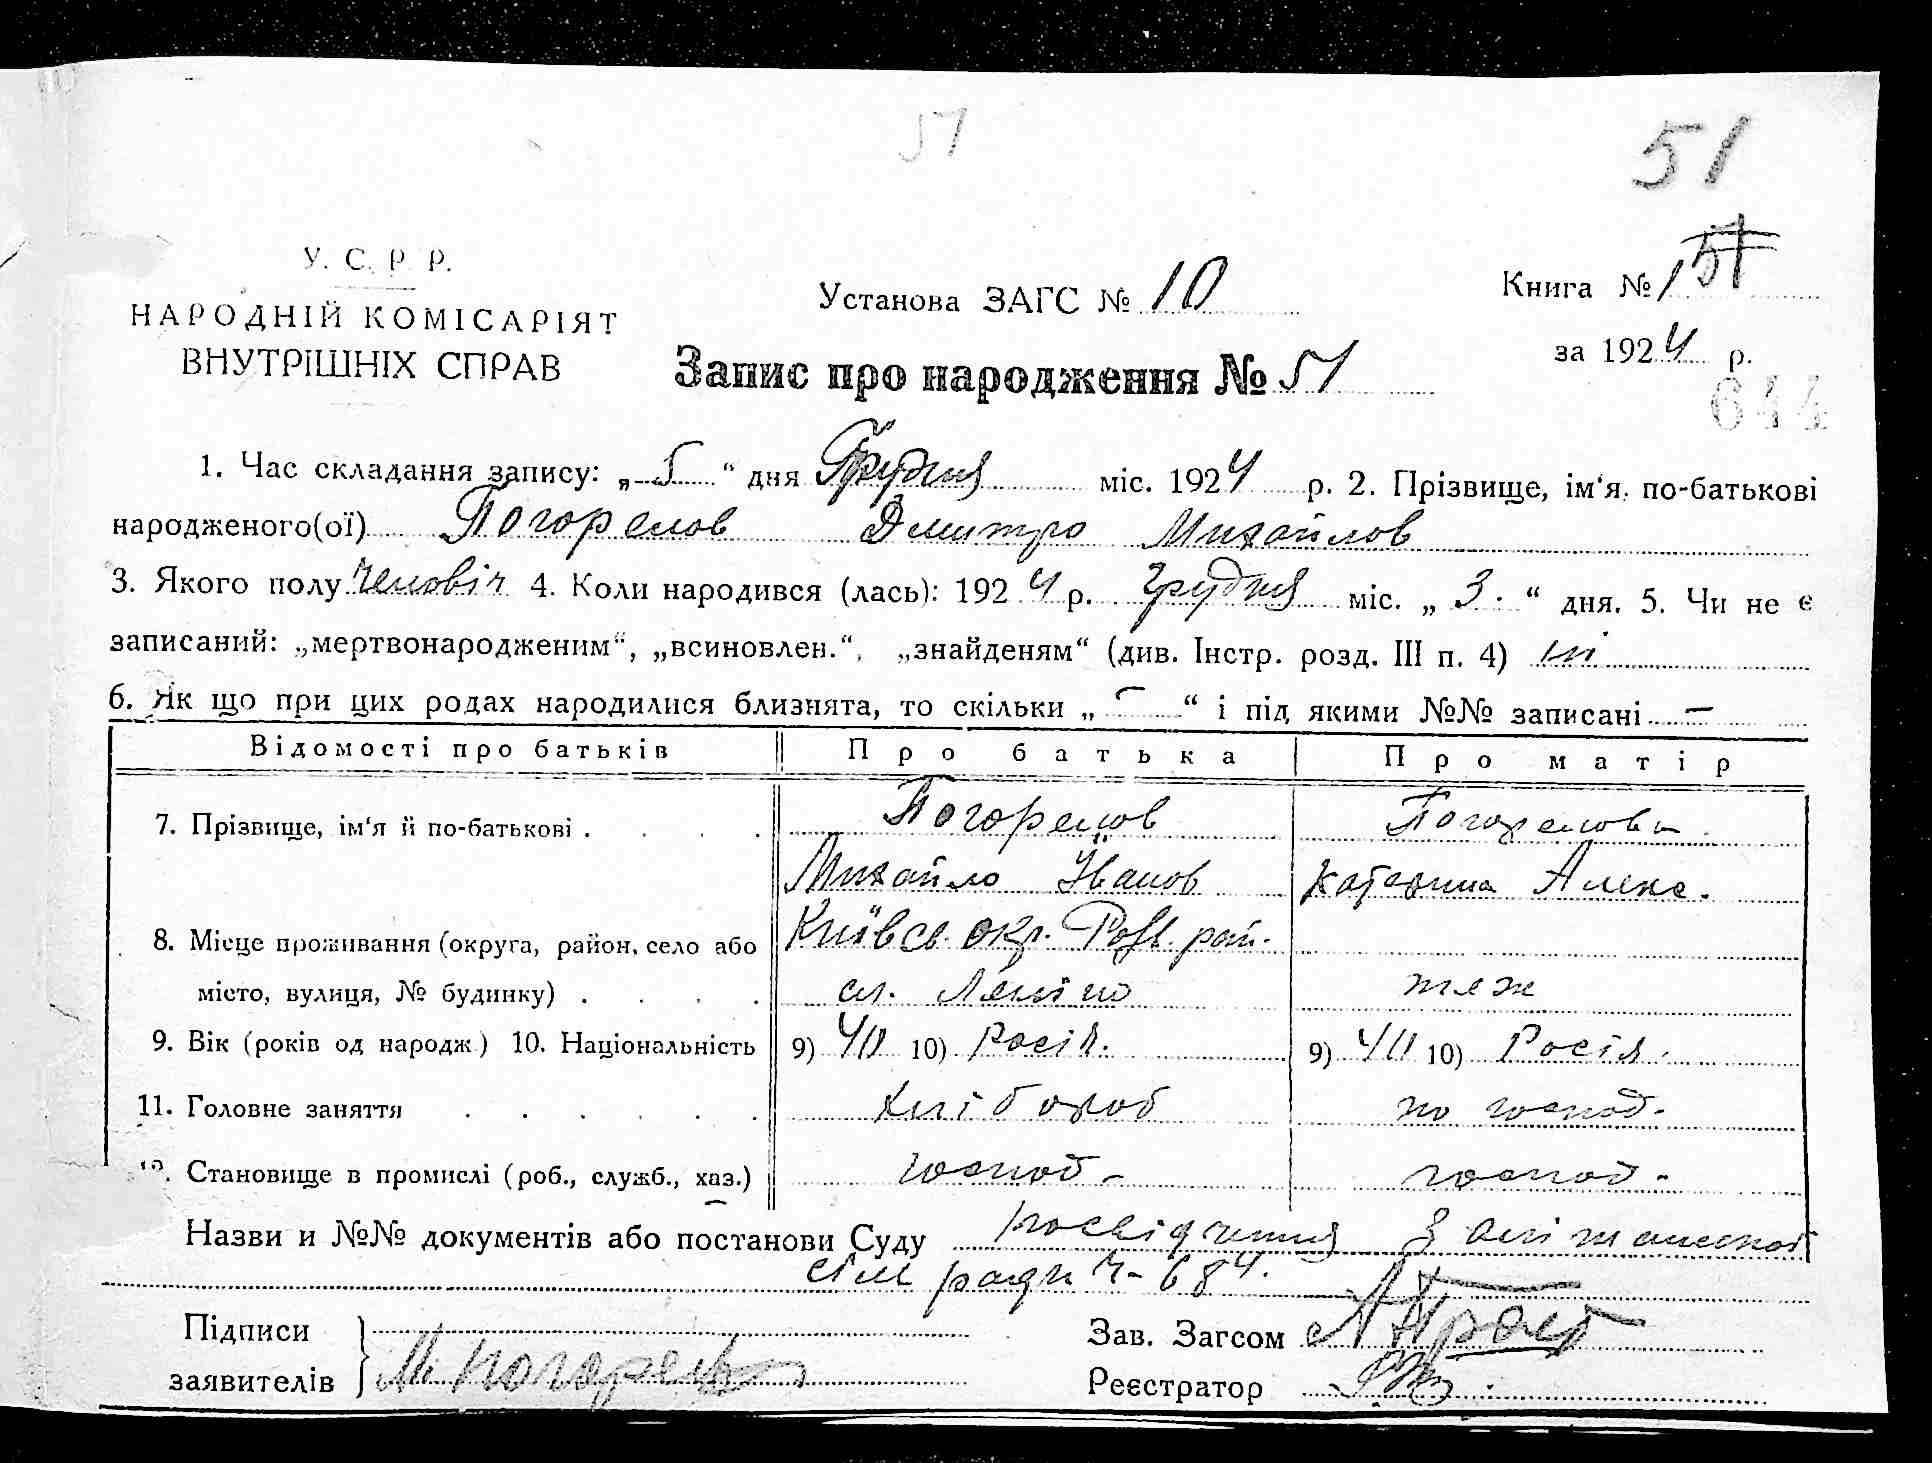 51
51
51
У. С. Р. Р.
НАРОДНІЙ КОМІСАРІЯТ
ВНУТРІШНІХ СПРАВ
Установа ЗАГС № 10
Книга № 1
за 1924 р.
Запис про народження № 51
644
1. Час складання запису: „ 5 “ дня Грудня міс. 1924 р. 2. Прізвище, ім‘я, по-батькові
народженого(ої) Погорелов Дмитро Михайлов
3. Якого полу Чоловіч 4. Коли народився (лась): 1924 р. Грудня міс. „ 3. “ дня. 5. Чи не є
записаний: „мертвонародженим“, „всиновлен.“, „знайденям“ (див. Інстр. розд. III п. 4) ні
6. Як що при цих родах народилися близнята, то скільки „ – “ і під якими №№ записані –
Відомості про батьків Про батька Про матір
7. Прізвище, ім‘я й по-батькові . . . . Погорелов Погорелова
Михайло Іванов Катерина Алекс.
8. Місце проживання (округа, район, село або Київсь. окр. рай.
місто, вулиця, № будинку) . . . . теж
9. Вік (років од народж.) 10. Національність 9) 40 10) Росія. 9) 40 10) Росія.
11. Головне заняття . . . . . . Хлібороб по господ.
12. Становище в промислі (роб., служб., хаз.) господ- господ-
Назви и №№ документів або постанови Суду посвідчення
сіль ради Ч- 684.
Підписи
заявителів М Погорелов
Зав. Загсом
Реєстратор